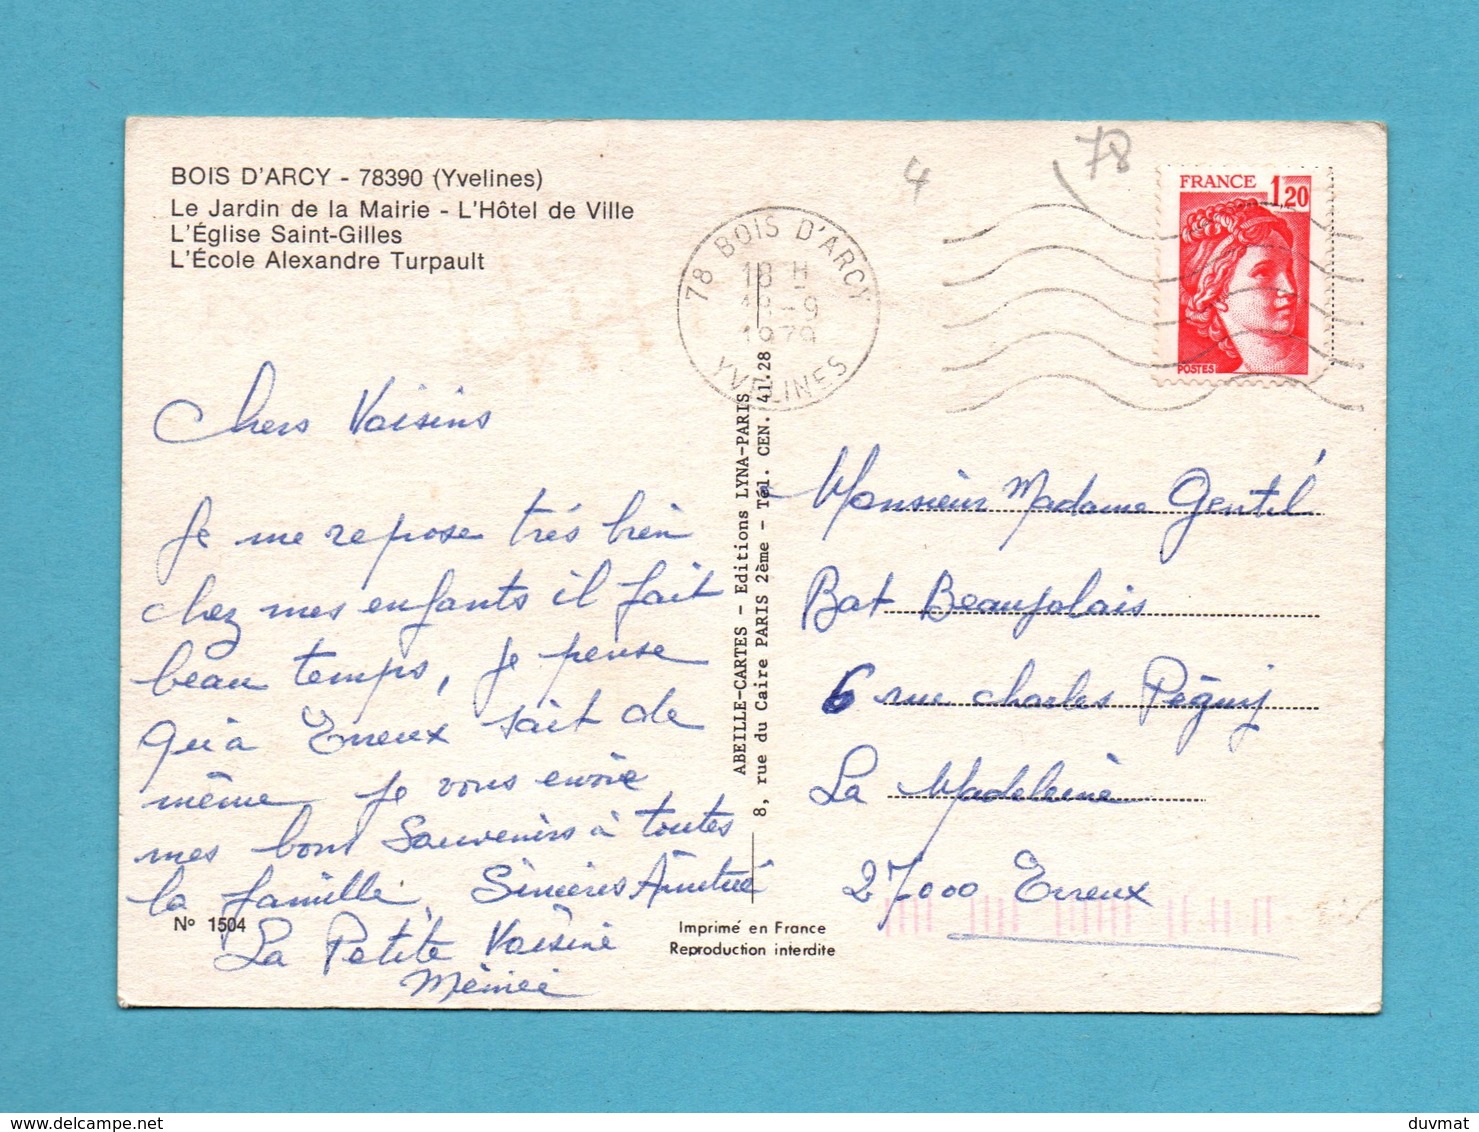 BOIS D'ARCY - 78390 (Yvelines)
Le Jardin de la Mairie - L'Hôtel de Ville
L'Église Saint-Gilles
L'École Alexandre Turpault
4
78
FRANCE 1,20
POSTES
78 BOIS D'ARCY
18 H
-9
1979
YVELINES
Chers Voisins
Je me repose très bien
chez mes enfants il fait
beau temps, je pense
qu'à Evreux sait de
même, je vous envoie
mes bons Souvenirs à toutes
la famille, Sincères Amitié
La Petite Voisine
Mémée
N° 1504
ABEILLE-CARTES - Editions LYNA-PARIS
8, rue du Caire PARIS 2ème - Tél. CEN. 41.28
Imprimé en France
Reproduction interdite
Monsieur Madame Gentil
Bat Beaujolais
6 rue charles Péguy
La Madeleine
27000 Evreux
delcampe.net
duvmat